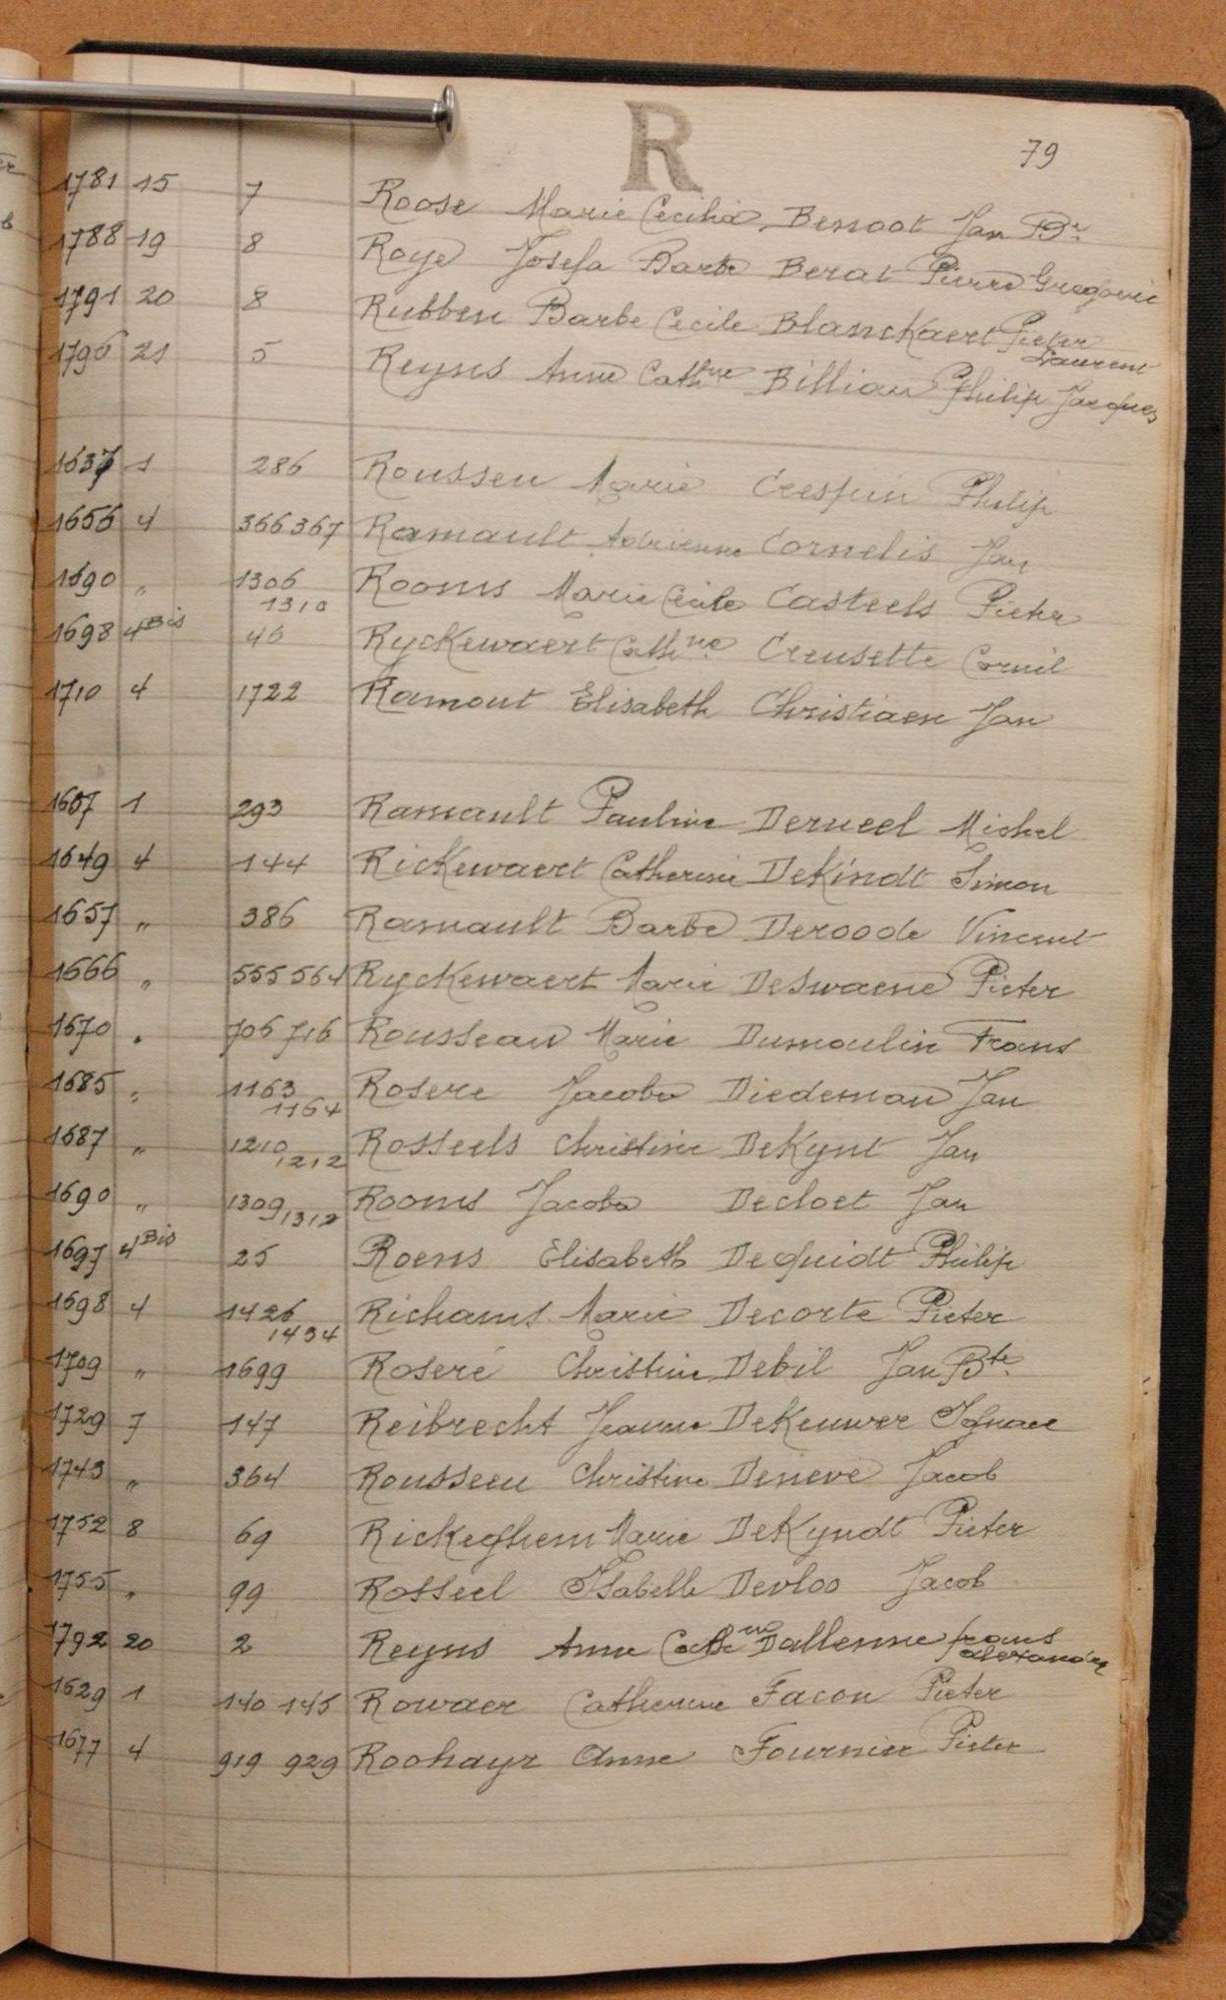 R
79
1781 15 7 Roose Marie Cecilia Benoot Jan Bte
1788 19 8 Roye Josefa Barbe Berat Pierre Gregorie
1791 20 8 Rubben Barbe Cecile Blanckaert Pieter Laurent
1796 21 5 Reyns Anne Cathne Billiau Philip Jacques
1637 1 286 Rousseu Marie Crespun Philip
1656 4 366 367 Ramault Adrienne Cornelis Jan
1690 " 1306 1310 Rooms Marie Cecile Casteels Pieter
1698 4Bis 46 Ryckewaert Cathne Creusette Cornil
1710 4 1722 Ramout Elisabeth Christiaen Jan
1607 1 293 Ramault Pauline Derueel Michel
1649 4 144 Rickewaert Catherine DeKindt Simon
1657 " 386 Ramault Barbe Deroode Vincent
1666 " 555 564 Ryckewaert Marie Deswaene Pieter
1670 " 706 716 Rousseau Marie Dumoulin Frans
1685 " 1163 1164 Rosere Jacoba Diedeman Jan
1687 " 1210 1212 Rosseels Christine DeKynt Jan
1690 " 1309 1312 Rooms Jacoba Decloet Jan
1697 4Bis 25 Roens Elisabeth Dequidt Philip
1698 4 1426 1434 Richams Marie Decorte Pieter
1709 " 1699 Roseré Christine Debil Jan Bte
1729 7 147 Reibrecht Jeanne DeKeuwer Ignace
1743 " 364 Rousseeu Christine Deneve Jacob
1752 8 69 Rickeghem Marie DeKyndt Pieter
1755 " 99 Rosseel Isabelle Devloo Jacob
1792 20 2 Reyns Anne Cathne Dallenne frans alexandre
1629 1 140 145 Rowaer Catherine Facon Pieter
1677 4 919 929 Roohayr Anne Fournier Pieter